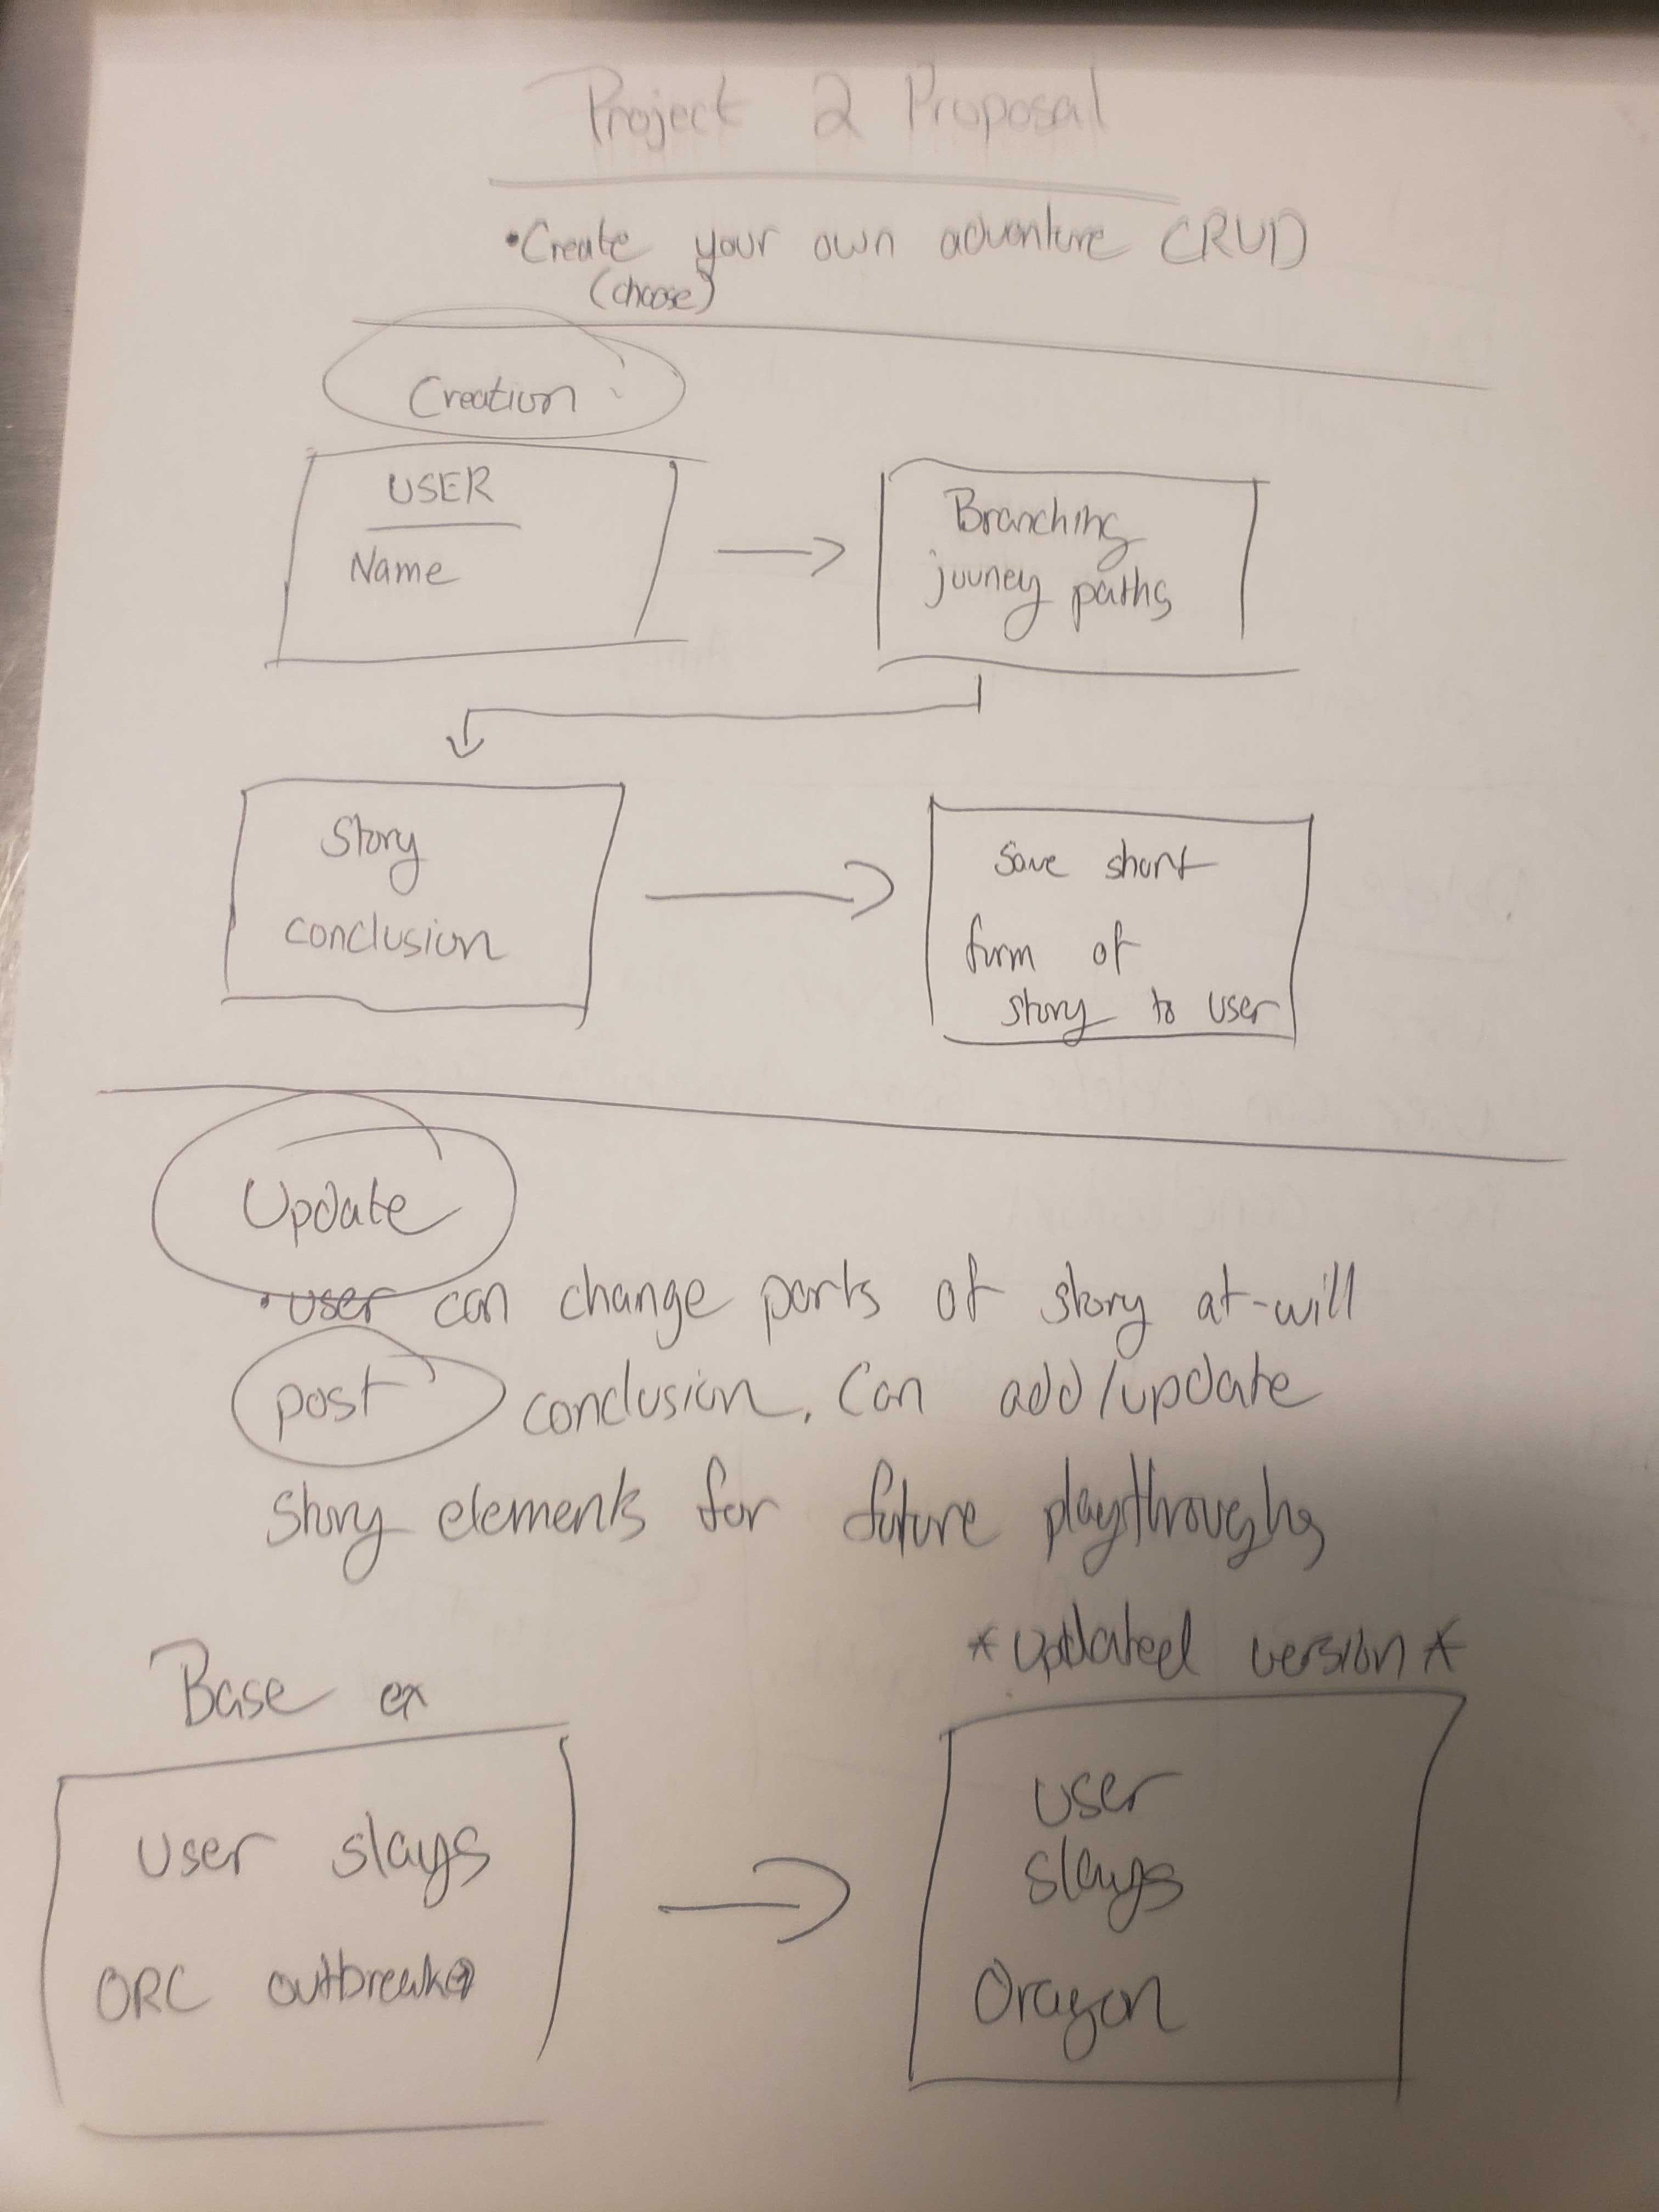 Project 2 Proposal
•Create your own adventure CRUD
(choose)
Creation:
USER
Name
Branching
jouney paths
Story
conclusion
Save short
form of
story to user
Update
•user can change parts of story at-will
post conclusion. Can add/update
story elements for future playthroughs
Base ex
*updated version*
user slays
ORC outbreak
user
slays
Dragon